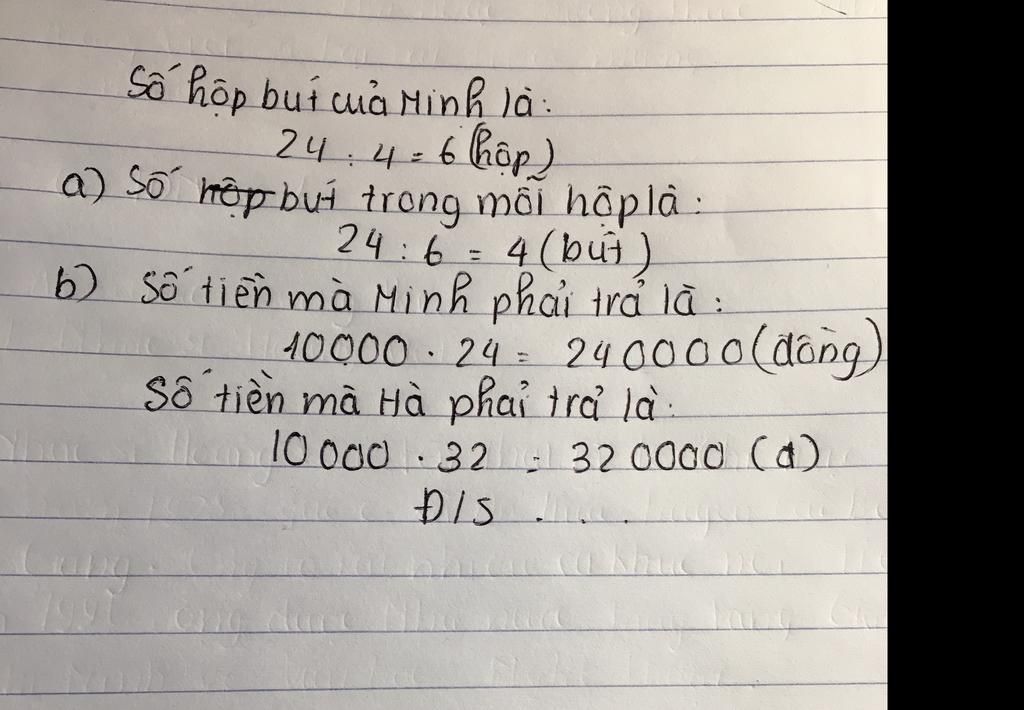 Số hộp bút của Minh là:
24 : 4 = 6 (hộp)
a) Số hộp bút trong mỗi hộp là:
24 : 6 = 4 (bút)
b) Số tiền mà Minh phải trả là:
10000 . 24 = 240000 (đồng)
Số tiền mà Hà phải trả là:
10000 . 32 = 320000 (đ)
Đ/S . . .